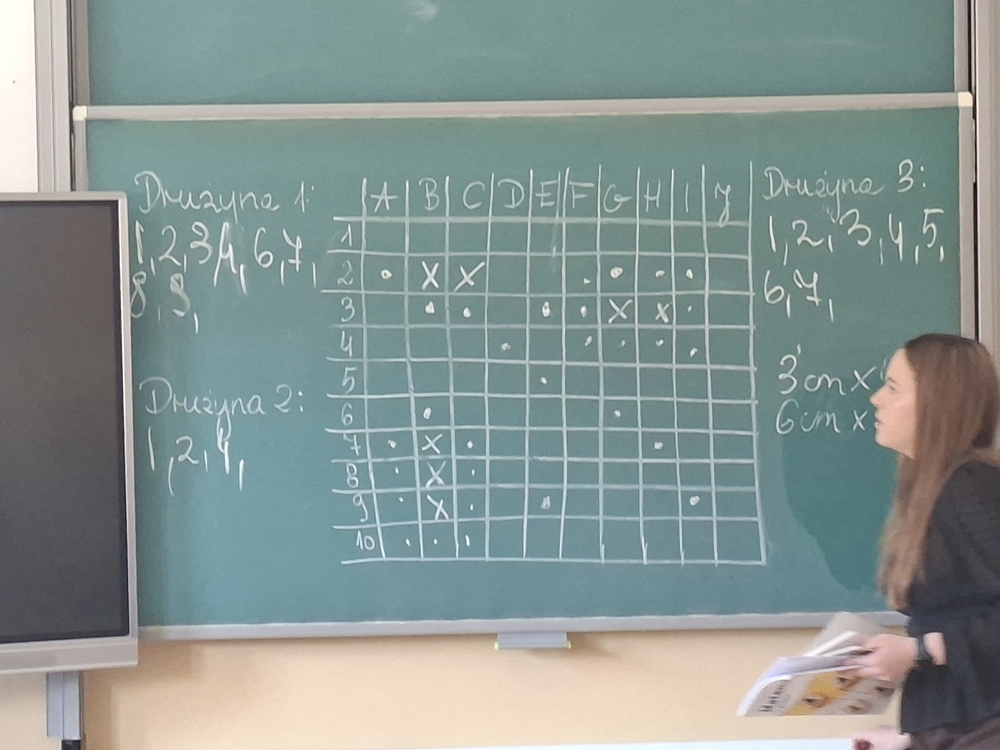 Drużyna 1:
1,2,3,4,6,7,
8,9,
Drużyna 2:
1,2,4,
A B C D E F G H I J
1
2 • X X • • • •
3 • • • • X X •
4 • • • • •
5 •
6 • •
7 • X • •
8 • X •
9 • X • • •
10 • • •
Drużyna 3:
1,2,3,4,5,
6,7,
3cm x
6cm x